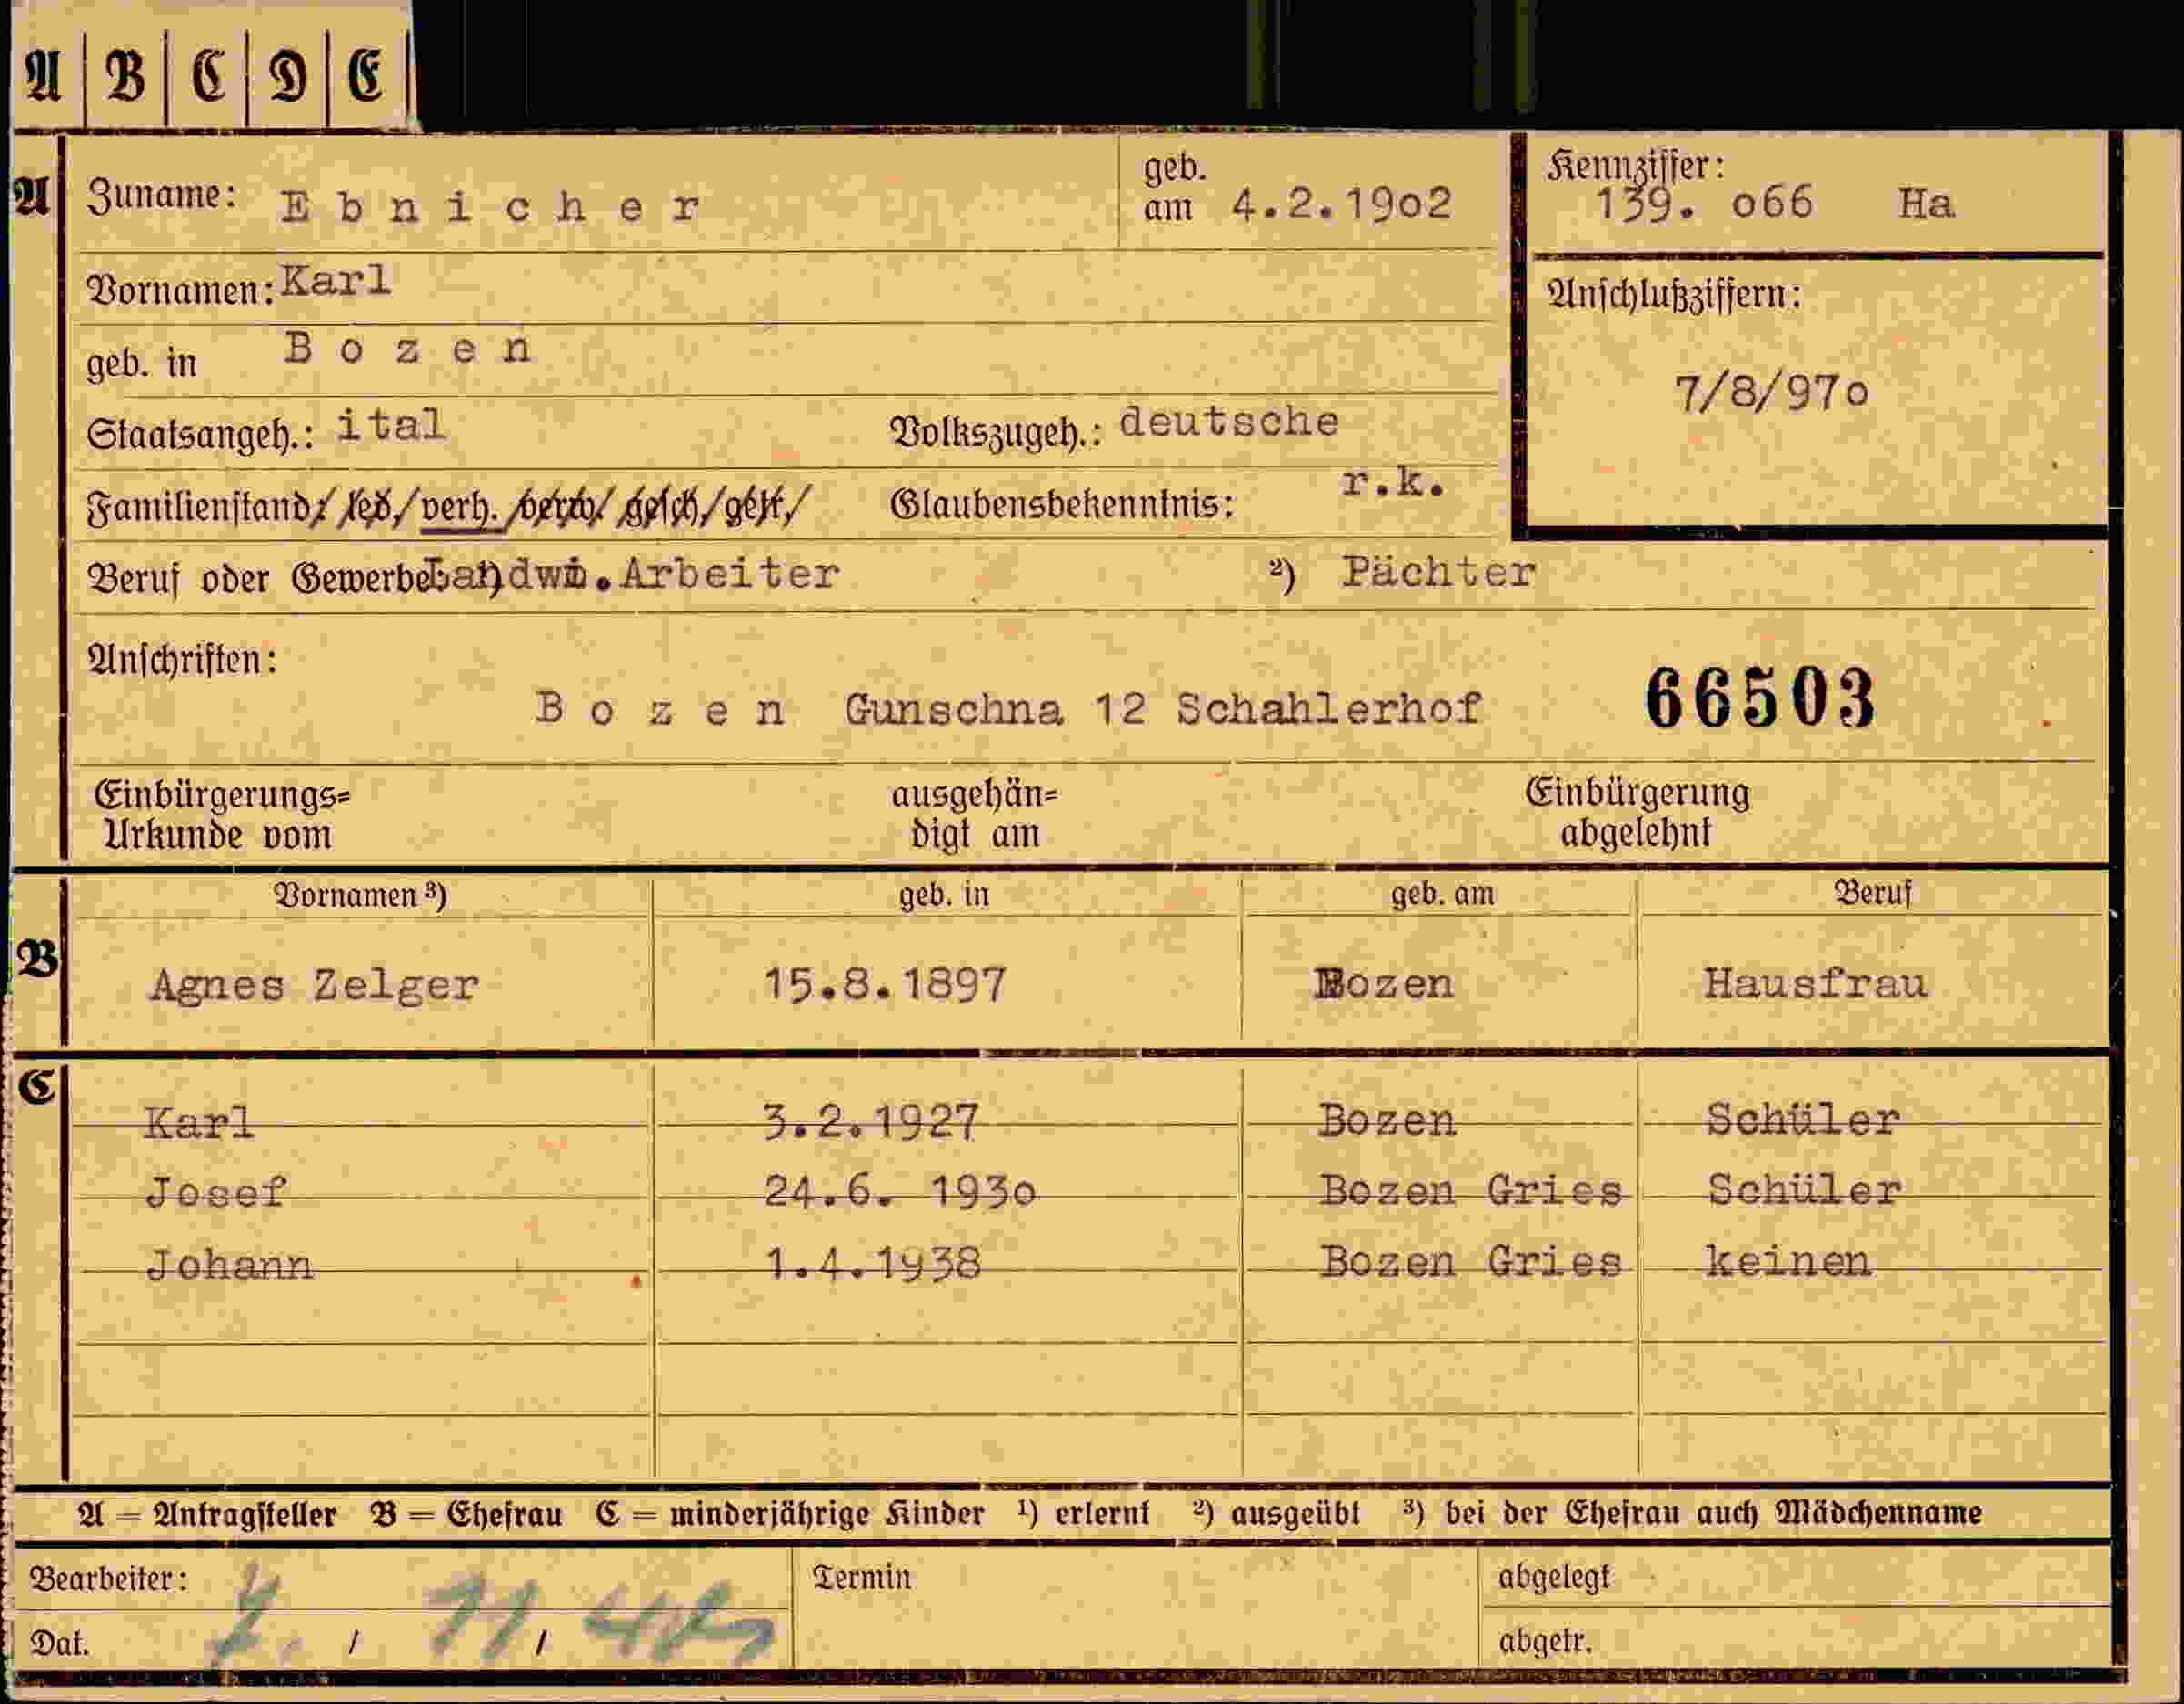 A | B | C | D | E
A Zuname: Ebnicher geb. am 4.2.19o2 Kennziffer: 139. o66 Ha
Vornamen: Karl Anschlußziffern:
geb. in Bozen 7/8/97o
Staatsangeh.: ital Volkszugeh.: deutsche
Familienstand: led./verh. verw. gesch./getr./ Glaubensbekenntnis: r.k.
Beruf oder Gewerbe Landwi. Arbeiter ²) Pächter
Anschriften:
Bozen Gunschna 12 Schahlerhof 66503
Einbürgerungs= ausgehän= Einbürgerung
Urkunde vom digt am abgelehnt
Vornamen ³) geb. in geb. am Beruf
B Agnes Zelger 15.8.1897 Bozen Hausfrau
C
Karl 3.2.1927 Bozen Schüler
Josef 24.6. 193o Bozen Gries Schüler
Johann 1.4.1938 Bozen Gries keinen
A = Antragsteller B = Ehefrau C = minderjährige Kinder ¹) erlernt ²) ausgeübt ³) bei der Ehefrau auch Mädchenname
Bearbeiter: Termin abgelegt
Dat. / / abgetr.